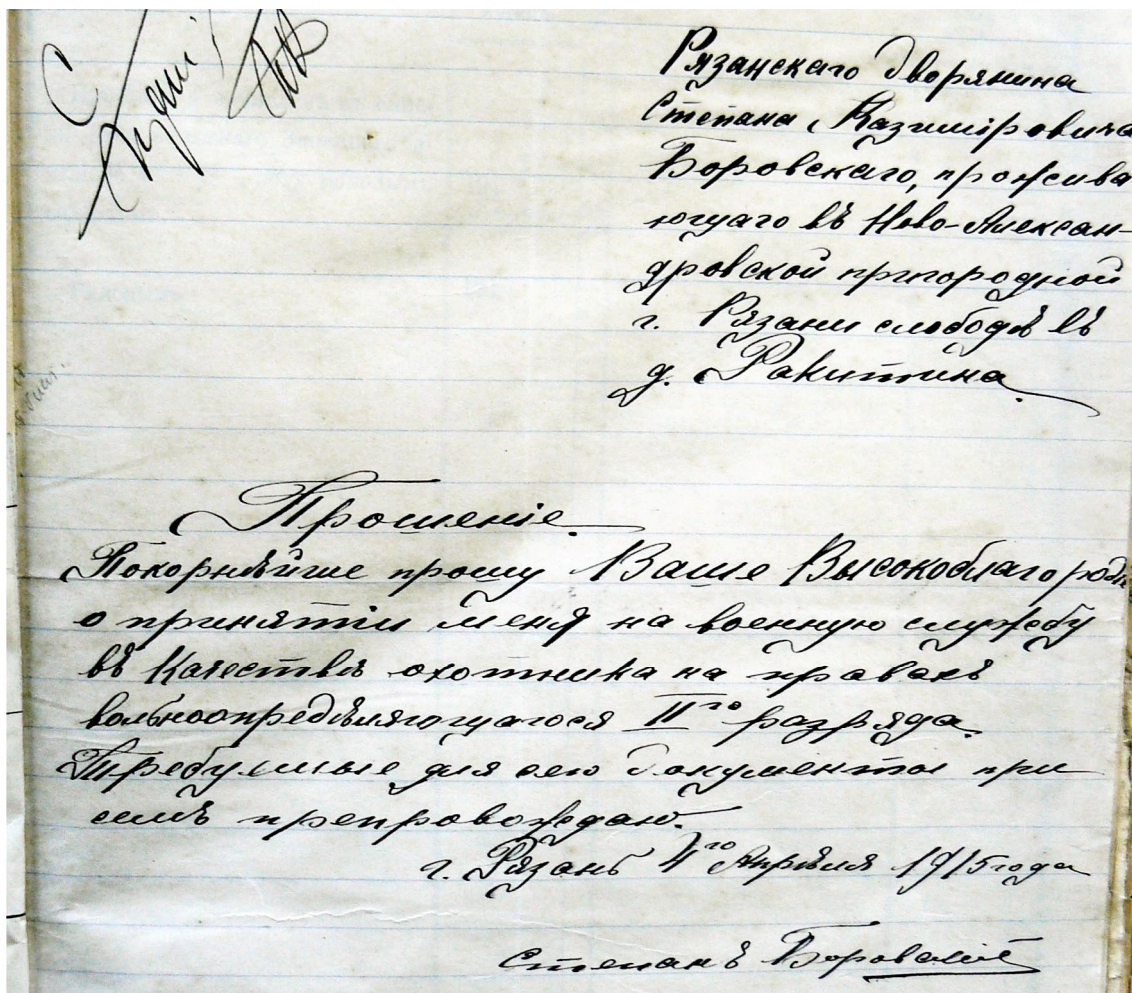 Рязанскаго дворянина
Степана Казиміровича
Боровскаго, прожива
ющаго въ Ново-Алексан-
дровской пригородной
г. Рязани слободѣ въ
д. Ракитина.
Прошеніе.
Покорнѣйше прошу Ваше Высокоблагороді
о принятіи меня на военную службу
въ качествѣ охотника на правахъ
вольноопредѣляющагося II го разряда.
Требуемые для сего документы при
семъ препровождаю.
г. Рязань 4 го Апрѣля 1915 года
Степанъ Боровскій